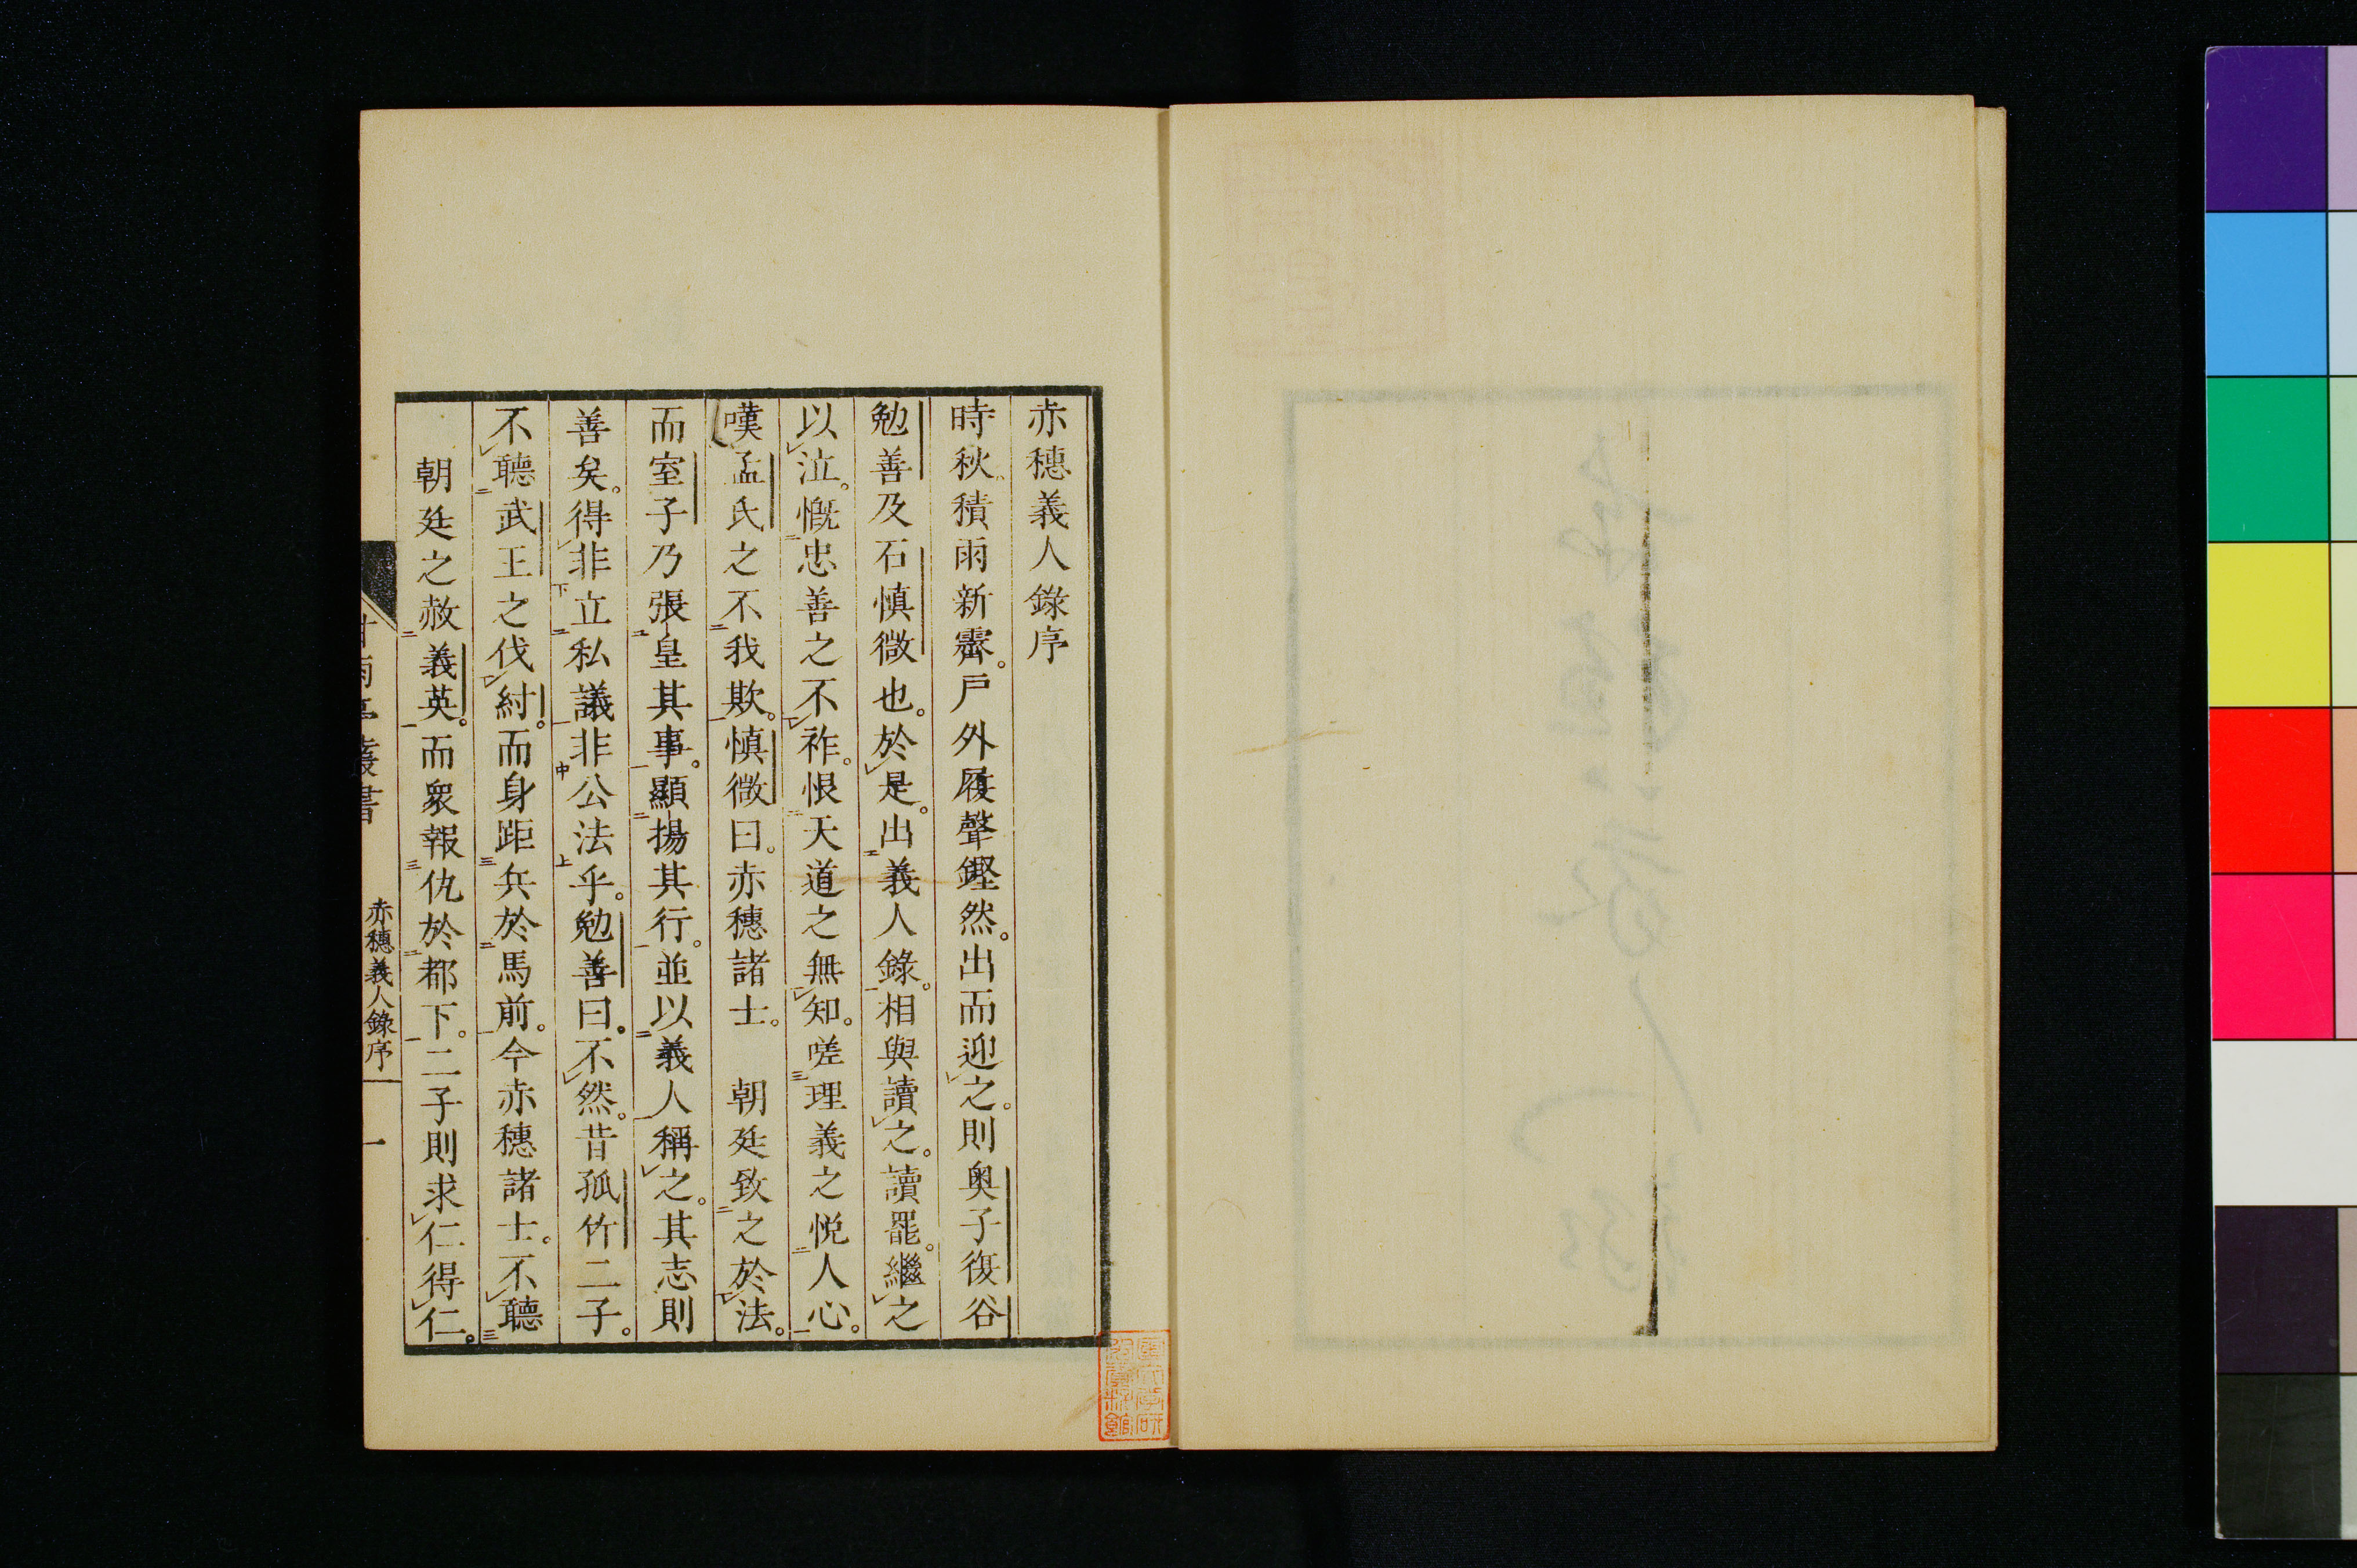 赤穗義人錄序
時秋積雨新霽。戶外履聲鏗然。出而迎之。則奧子復谷
勉善及石慎微也。於是。出義人錄。相與讀之。讀罷。繼之
以泣。慨忠善之不祚。恨天道之無知。嗟理義之悅人心。
嘆孟氏之不我欺。慎微曰。赤穗諸士。　朝廷致之於法。
而室子乃張皇其事。顯揚其行。並以義人稱之。其志則
善矣。得非立私議非公法乎。勉善曰。不然。昔孤竹二子。
不聽武王之伐紂。而身距兵於馬前。今赤穗諸士。不聽
朝廷之赦義英。而衆報仇於都下。二子則求仁得仁。
赤穗義人錄序
一